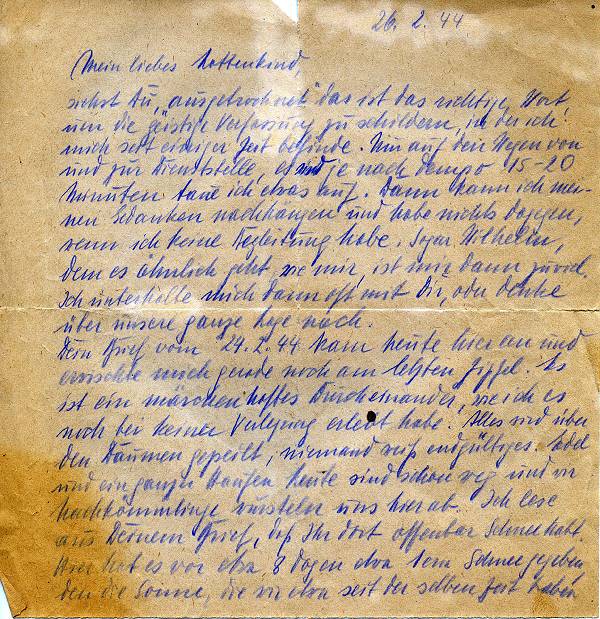 26. 2. 44
Mein liebes Lottenkind,
siehst Du, "ausgetrocknet" das ist das richtige Wort
um die geistige Verfassung zu schildern, in der ich
mich seit einiger Zeit befinde. Nur auf den Wegen von
und zur Dienststelle, es sind je nach Tempo 15-20
Minuten taue ich etwas auf. Dann kann ich mei-
nen Gedanken nachhängen und habe nichts dagegen,
wenn ich keine Begleitung habe. Sogar Wilhelm,
dem es ähnlich geht, wie mir, ist mir dann zuviel.
Ich unterhalte mich dann oft mit Dir, oder denke
über unsere ganze Lage nach.
Dein Brief vom 24.2.44 kam heute hier an und
erwischte mich gerade noch am letzten Zippel. Es
ist ein märchenhaftes Durcheinander, wie ich es
noch bei keiner Verlegung erlebt habe. Alles wird über
den Daumen gepeilt, niemand weiß endgültiges.
und ein ganzer Haufen Leute sind schon weg und wir
Nachkömmlinge uns hier ab. Ich lese
aus Deinem Brief, daß Ihr dort offenbar Schnee habt.
Hier hat es vor etwa 8 Tagen etwa 1cm Schnee gegeben,
den die Sonne, die wir etwa seit der selben Zeit haben